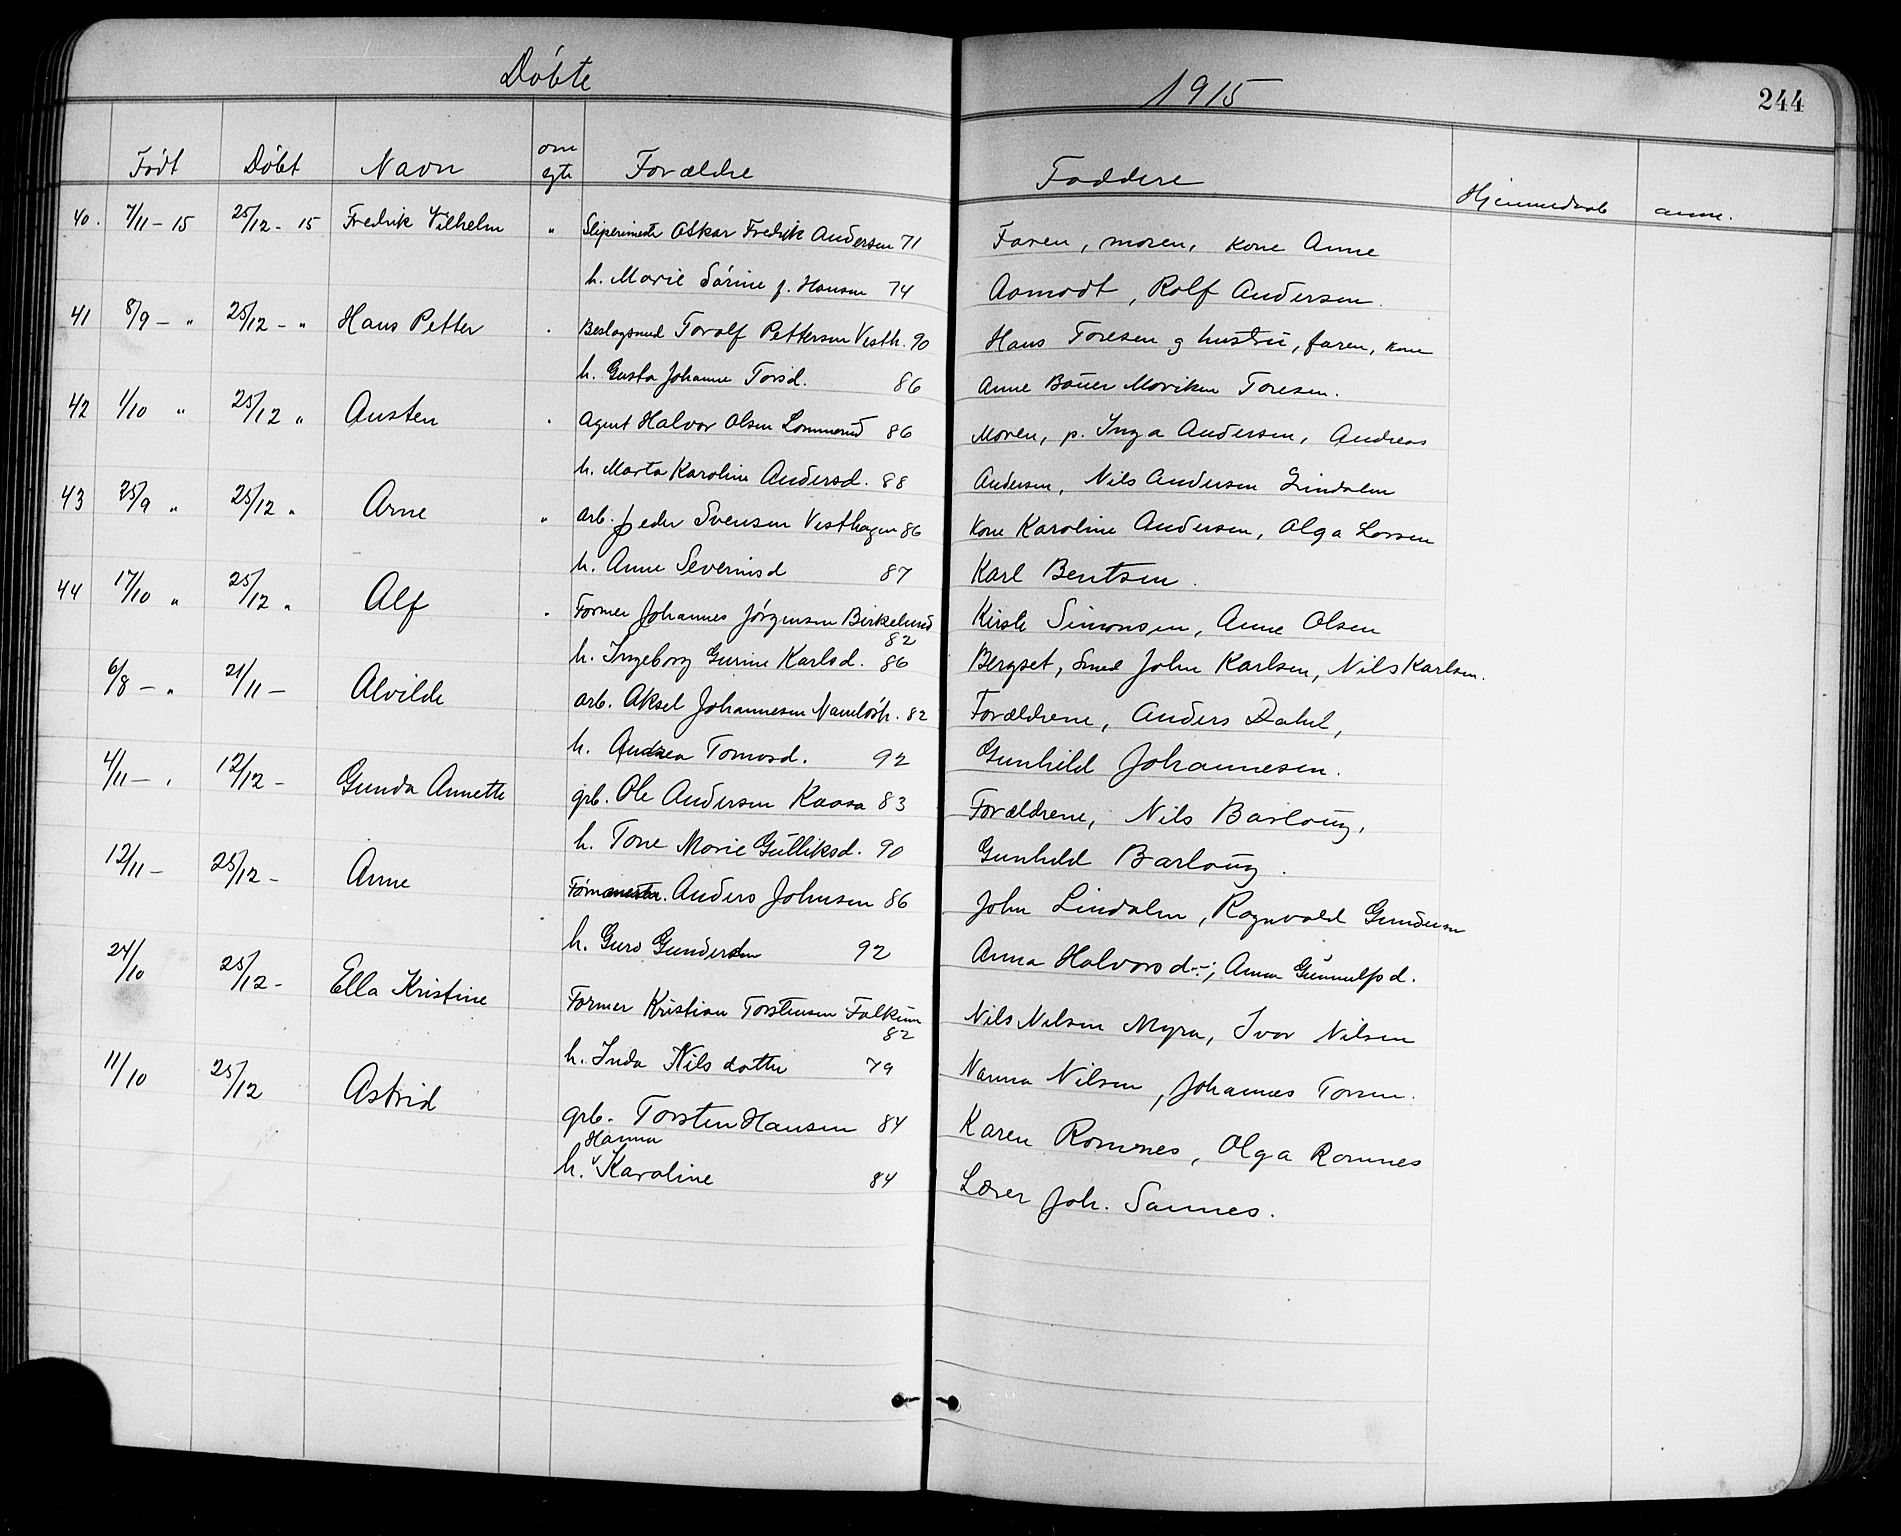 Døbte 1915 244
Født Døbt Navn om egte Forældre Faddere Hjemmedaab anm.
40. 7/11 - 15 25/12 - 15 Fredrik Vilhelm " Sliperimester Oskar Fredrik Andersen 71 Faren, moren, kone Anne
h. Marie Sørine f. Hansen 74 Aamodt, Rolf Andersen.
41 8/9 - " 25/12 - " Hans Petter " Beslagsmed Toralf Pettersen Vesth. 90 Hans Toresen g hustru, faren, kone
h. Gusta Johanne Torsd. 86 Anne Bauer Moviken Toresen.
42 1/10 " 25/12 " Austen " Agent Halvor Olsen Lommerud 86 Moren, p. Inga Andersen, Andreas
h. Marta Karoline Andersd. 88 Andersen, Nils Andersen Lindalen
43 25/9 " 25/12 " Arne " arb. Peder Svensen Vesthagen 86 Kone Karoline Andersen, Olga Larsen
h. Anne Severinsd 87 Karl Bentsen.
44 17/10 " 25/12 " Alf " Former Johannes Jørgensen Birkelund 82 Kirsti Simonsen, Anne Olsen
h. Ingeborg Gurine Karlsd. 86 Bergset, Smed John Karlsen, Nils Karlsen.
6/8 - " 21/11 - Alvilde arb. Aksel Johannesen Namløsh. 82 Forældrene, Anders Dahl,
h. Andrea Tomasd. 92 Gunhild Johannesen.
4/11 - " 12/12 - Gunda Annette grb. Ole Andersen Kaasa 83 Forældrene, Nils Barloug,
h. Tone Marie Gulliksd. 90 Gunhild Barloug.
12/11 - 25/12 - Anne Formmester. Anders Johnsen 86 John Lindalen, Ragnvald Gundersen
h. Guro Gundersen 92 Anna Halvorsd -; Anna Gunnulfsd.
24/10 25/12 - Ella Kristine Former Kristian Torstensen Falkum 82 Nils Nilsen Myra, Ivar Nilsen
h. Inda Nilsdatter 79 Nanna Nilsen, Johannes Torsen.
11/10 25/12 Astrid grb. Torsten Hansen 84 Karen Romnes, Olga Romnes
h. Hanna Karoline 84 Lærer Joh. Sannes.